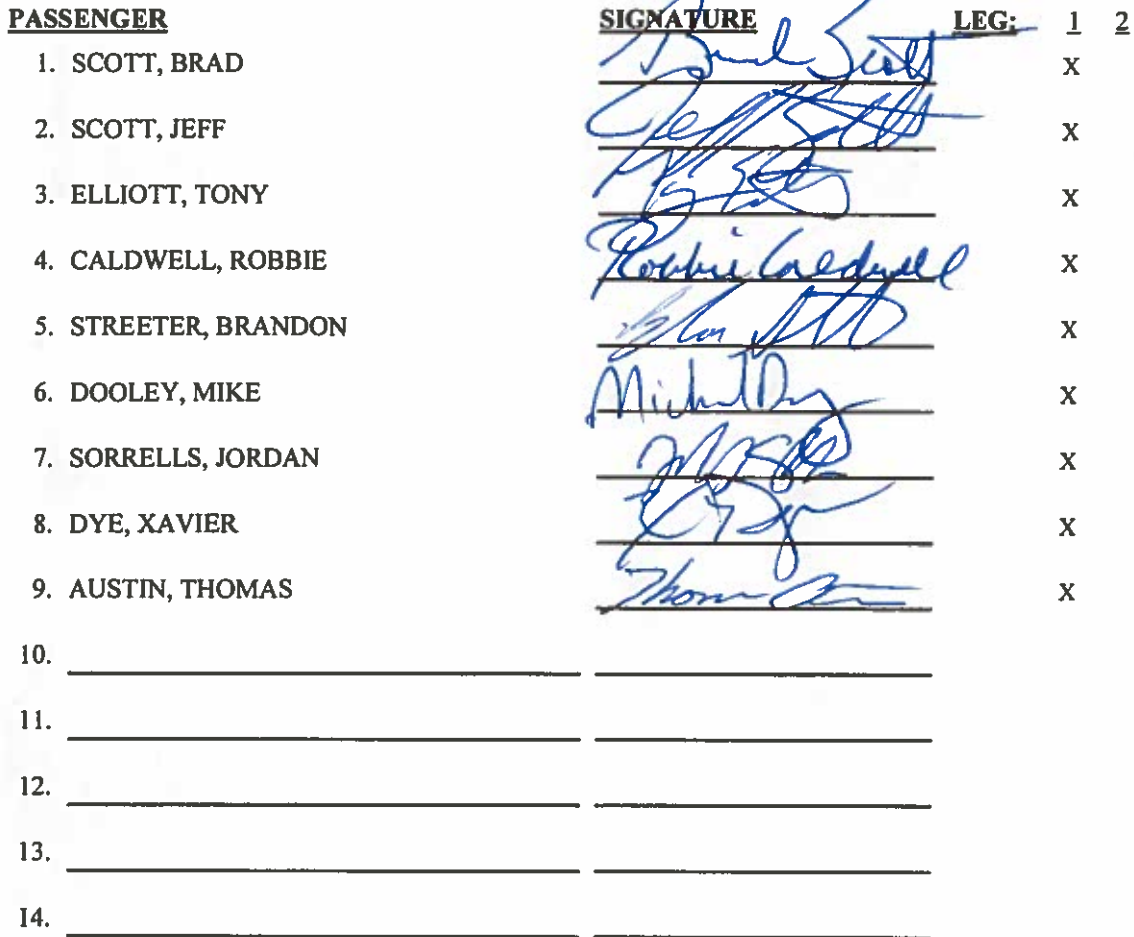 PASSENGER SIGNATURE LEG: 1 2
1. SCOTT, BRAD Brad Scott X
2. SCOTT, JEFF Jeff Scott X
3. ELLIOTT, TONY X
4. CALDWELL, ROBBIE Robbie Caldwell X
5. STREETER, BRANDON X
6. DOOLEY, MIKE Michael X
7. SORRELLS, JORDAN X
8. DYE, XAVIER X
9. AUSTIN, THOMAS Thomas X
10.
11.
12.
13.
14.